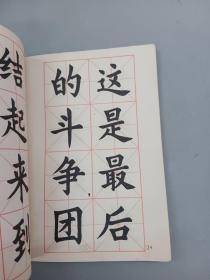 这是最后
的斗争，团
结起来到